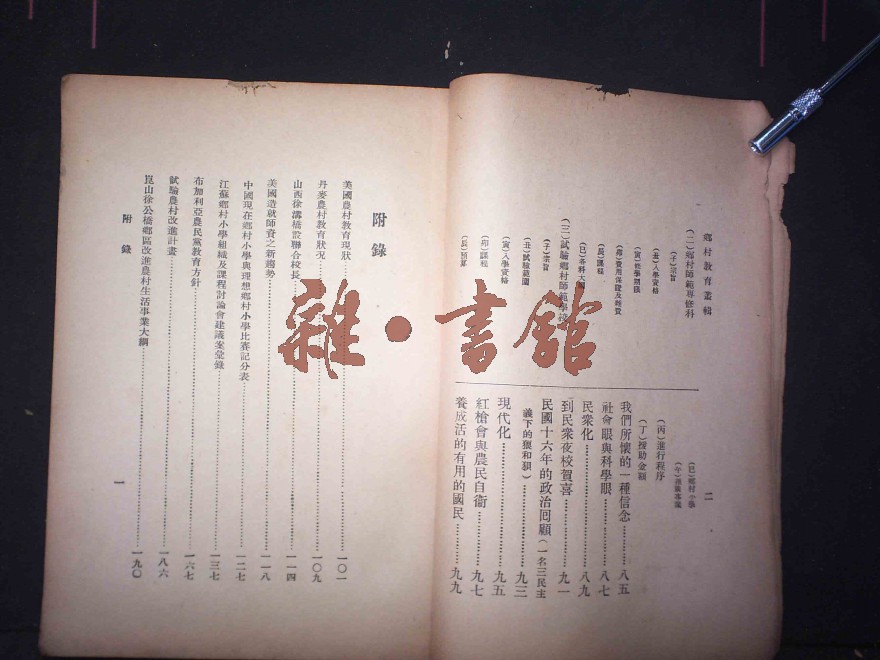 鄉村教育叢輯
二
(二)鄉村師範專修科
(子)宗旨
(丑)入學資格
(寅)修學期限
(卯)費用保證及經費
(辰)課程
(巳)各科大綱
(三)試驗鄉村師範學校
(子)宗旨
(丑)試驗範圍
(寅)入學資格
(卯)課程
(辰)預算
(巳)鄉村小學
(丙)進行程序
(丁)援助金額
我們所懷的一種信念………八五
社會眼與科學眼………八七
民衆化………八九
到民衆夜校賀喜………九一
民國十六年的政治回顧(一名三民主
義下的狽和狽)………九三
現代化………九五
紅槍會與農民自衞………九七
養成活的有用的國民………九九
附錄
美國農村教育現狀………一〇一
丹麥農村教育狀况………一〇九
山西徐溝橋設聯合校長………一一四
美國造就師資之新趨勢………一一八
中國現在鄉村小學與理想鄉村小學比賽記分表………一二七
江蘇鄉村小學組織及課程討論會建議案彙錄………一三七
布加利亞農民黨教育方針………一六七
試驗農村改進計畫………一八六
崑山徐公橋鄉區改進農村生活事業大綱………一九〇
附錄
一
雜·書館